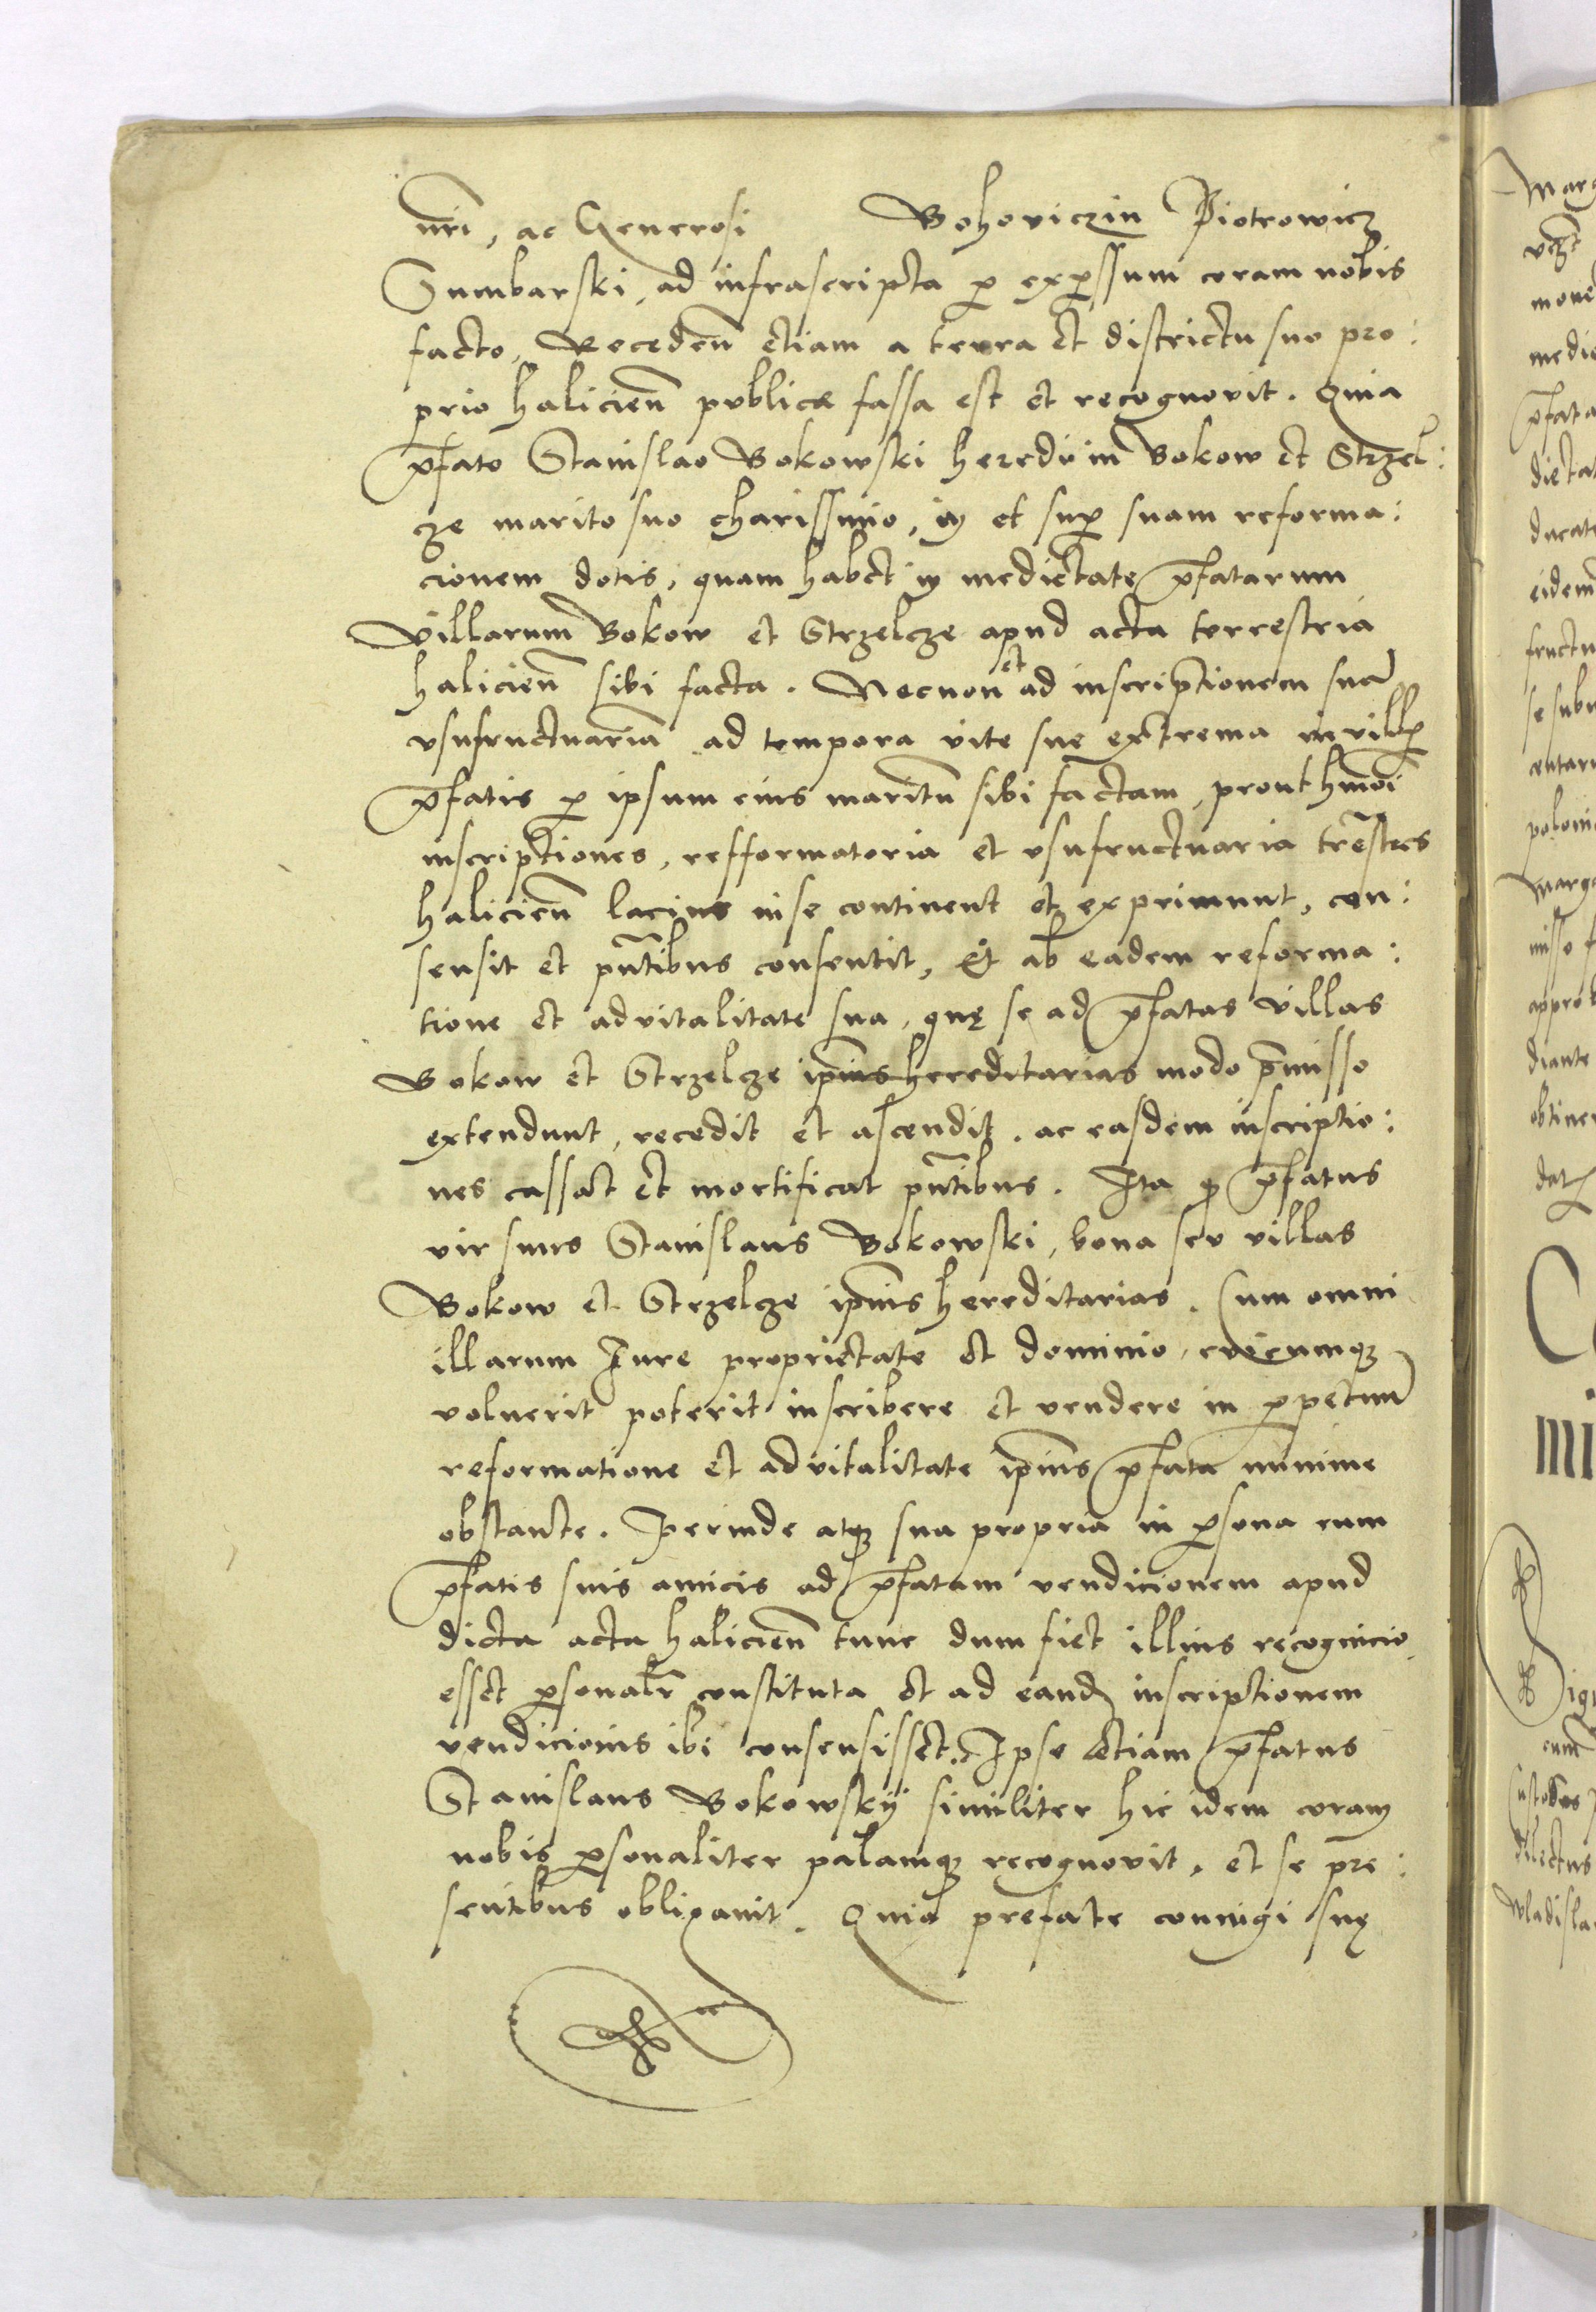 nr̃i, ac Generosi Bohoviczin Piotrowicz
Sumbarski, ad infrascripta p̲ exp̲ssum coram nobis
facto, Receden̄ etiam a terra et districtu suo pro:
prio halicien̄ publice fassa est et recognovit. Quia
p̄fato Stanislao Bokowski heredi in Bokow et Strzel:
cze marito suo charissimo, in et sup̲ suam reforma:
cionem dotis, quam habet in medietate p̄fatarum
villarum Bokow et Strzelcze apud acta terrestria
halicien̄ sibi facta. Necnon et ad inscriptionem suā
usufructuariā ad tempora vite sue extrema in vill
p̄fatis p̲ ipsum eius maritū sibi factam, prout hmōi
inscriptiones, refformatoria et usufructuaria tr̄estres
halicien̄ lacius in se continent et exprimunt, con:
sensit et pn̄tibus consentit, Et ab eadem reforma:
tione et advitalitate sua, quę se ad p̄fatas villas
Bokow et Strzelcze ip̄ius hereditarias modo p̄misso
extendunt, recedit et ascendit, ac easdem inscriptio:
nes cassat et mortificat pn̄tibus. Ita q p̄fatus
vir suus Stanislaus Bokowski, bona seu villas
Bokow et Strzelcze ip̄ius hereditarias, Cum omni
illarum Iure proprietate et dominio, cuicumq3
voluerit poterit inscribere et vendere in p̲petuū
reformatione et advitalitate ip̄ius p̄fata minime
obstante. Perinde atq3 sua propria in p̲sona cum
p̄fatis suis amicis ad p̄fatam vendicionem apud
dicta acta halicien̄ tunc dum fiet illius recognicio
esset p̲sonalr̄ constituta et ad eand inscriptionem
vendicionis ibi consensisset, Ipse etiam p̄fatus
Stanislaus Bokowskij similiter hic idem coram
nobis p̲sonaliter palamq3 recognovit, et se pre:
sentibus obligavit. Quia prefate coniugi suę